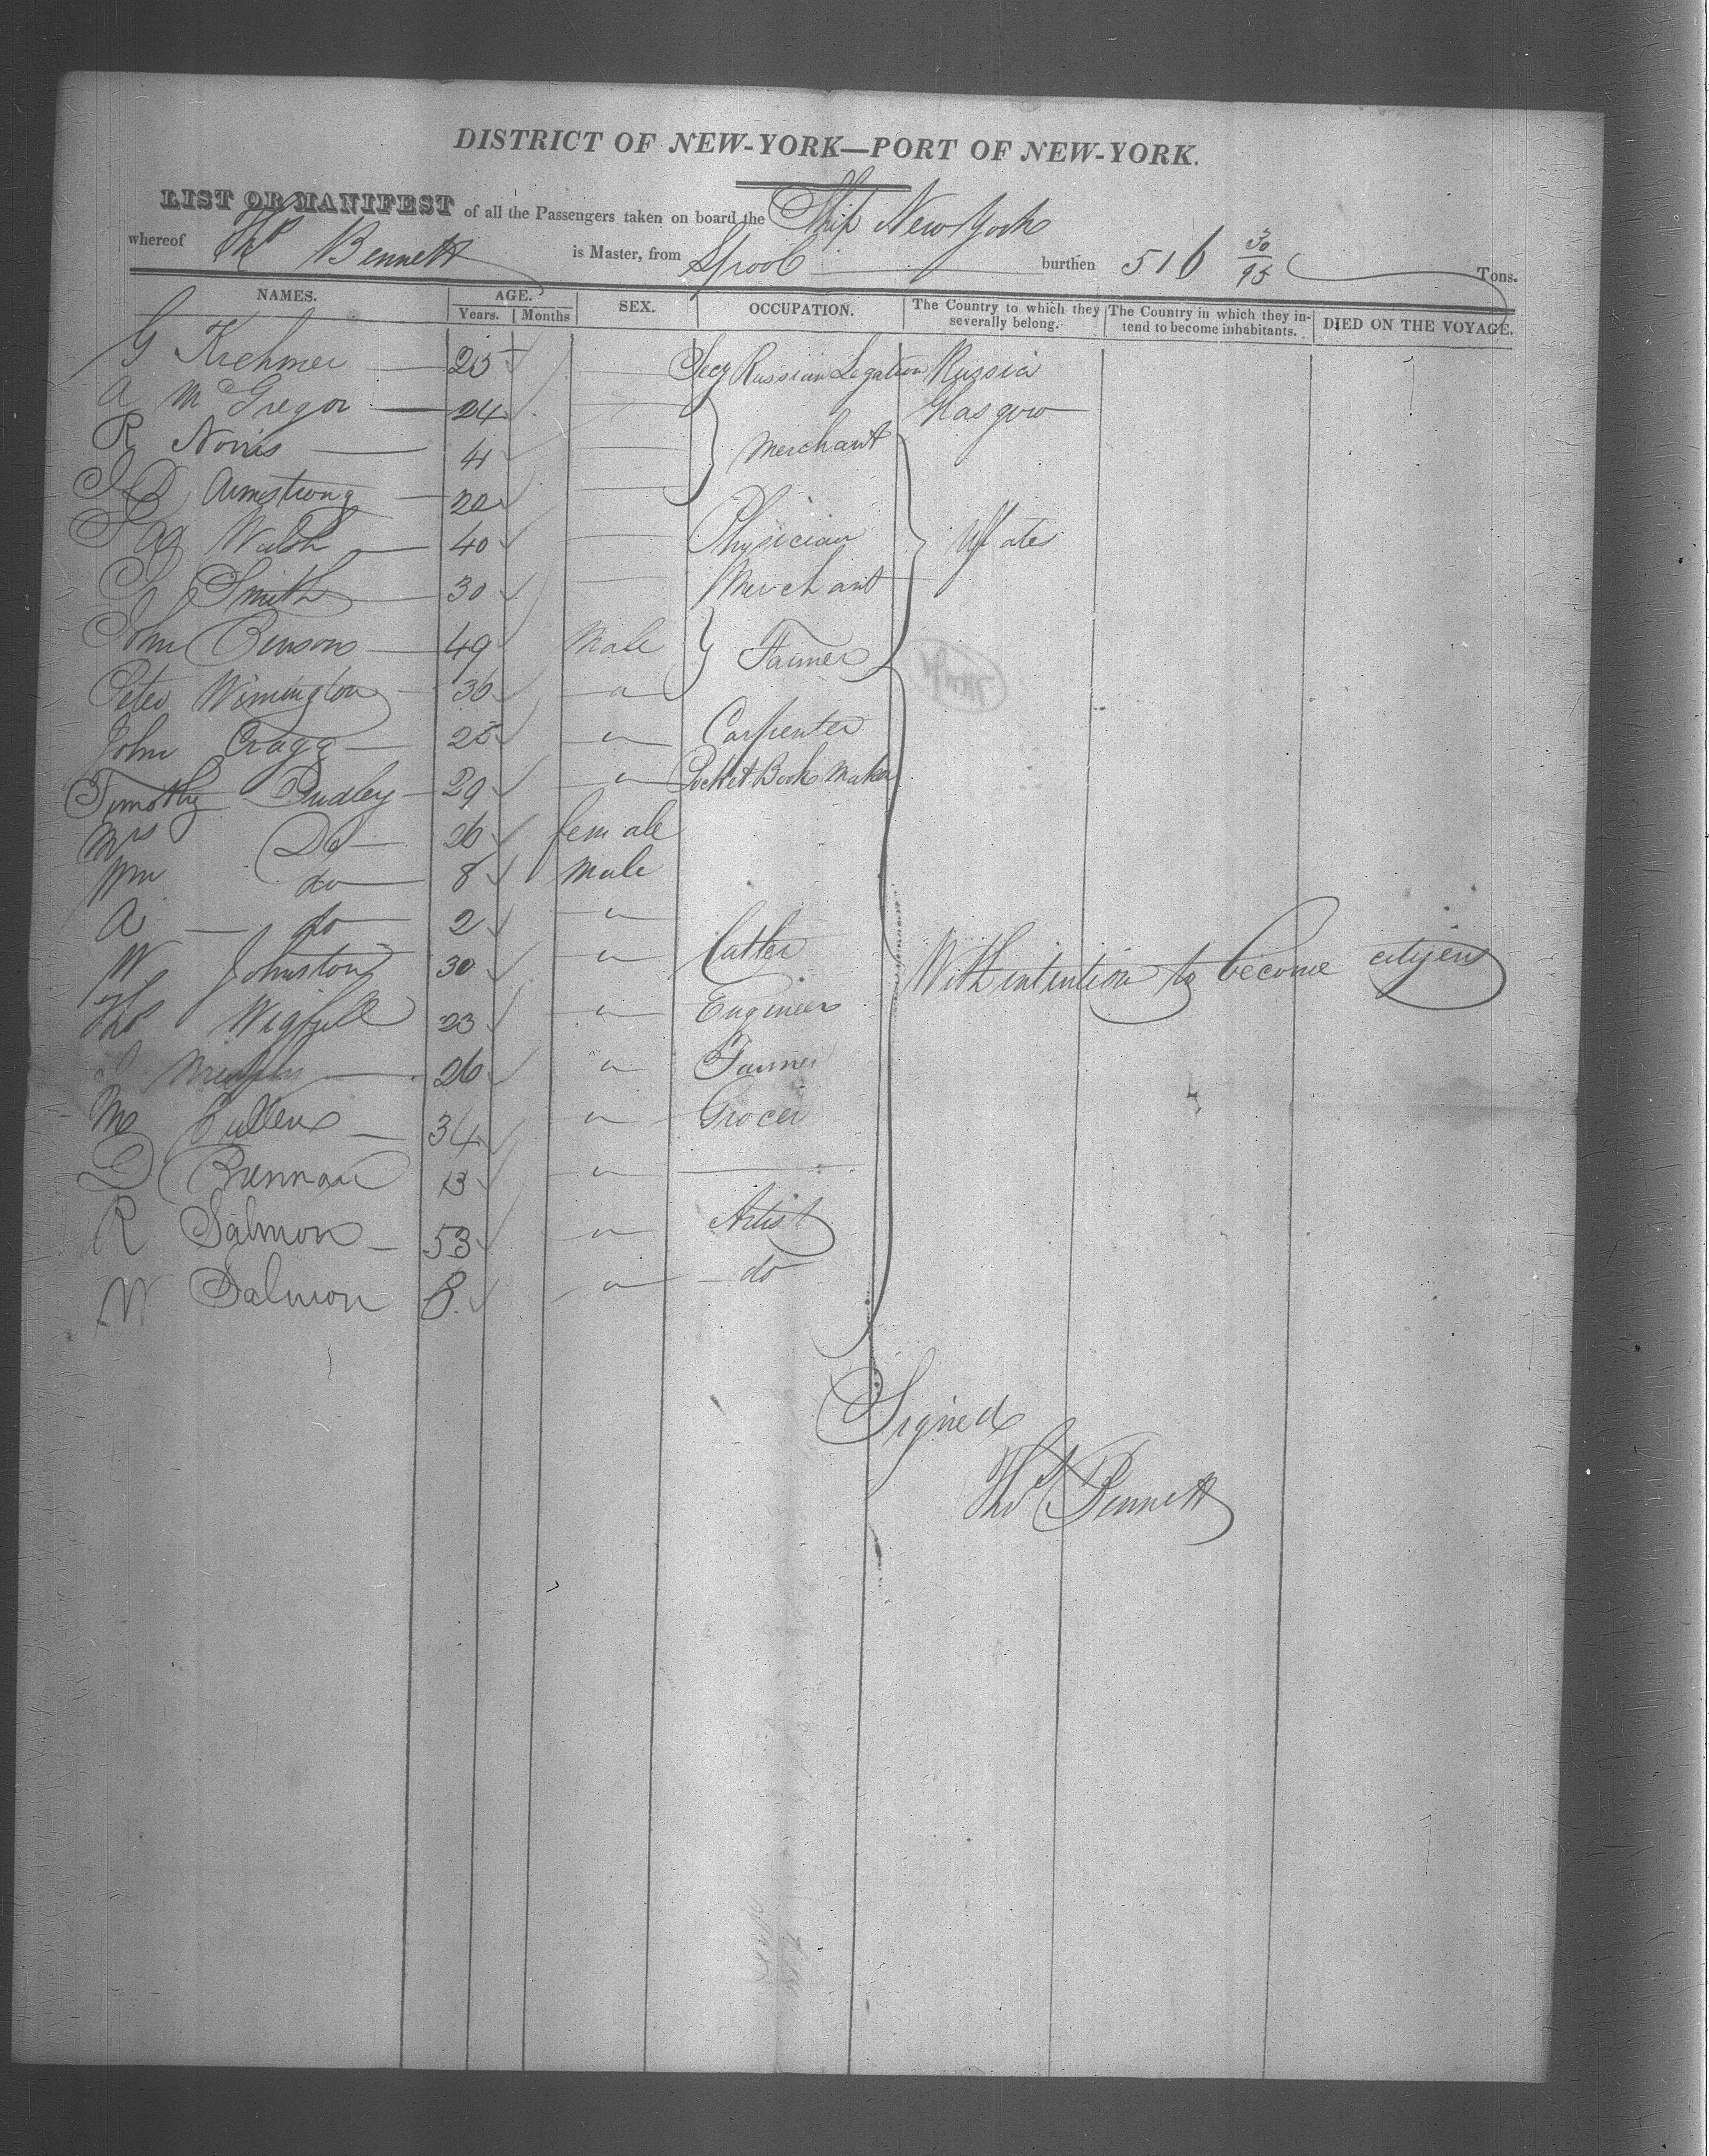 DISTRICT OF NEW-YORK—PORT OF NEW-YORK.
LIST OR MANIFEST of all the Passengers taken on board the Ship New York
whereof Thos Bennett is Master, from Lpool burthen 516 30/95 Tons.
NAMES. AGE. Years. Months SEX. OCCUPATION. The Country to which they severally belong. The Country in which they intend to become inhabitants. DIED ON THE VOYAGE.
G Krehmer 25 Secy Russian Legation Russia
A McGregor 24 Glasgow
R Norris 41 Merchant
J D Armstrong 20
Walsh 40 Physician States
S Smith 30 Merchant
John Benson 49 Male Farmer
Peter Wimington 36 "
John Cragg 25 " Carpenter
Timothy Dudley 29 " Pocket Book Maker
Mrs Do 26 female
Wm do 8 Male
A do 2 "
W Johnston 30 " Cutler With intention to become citizens
Thos 23 " Engineer
26 " Farmer
M Cullen 34 " Grocer
D Brennan 13 "
R Salmon 53 " Artist
W Salmon 8 " do
Signed
Thos Bennett